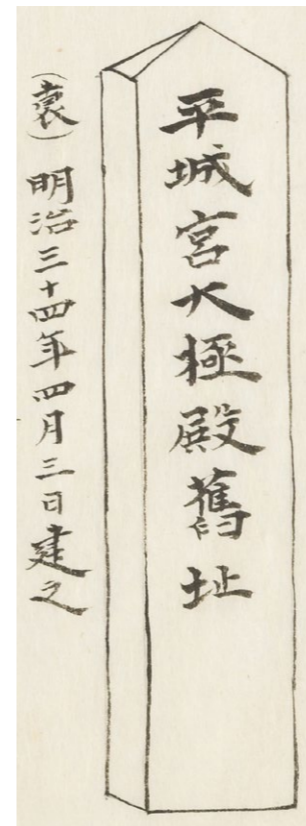 平城宮大極殿舊址
(裏)明治三十四年四月三日建之